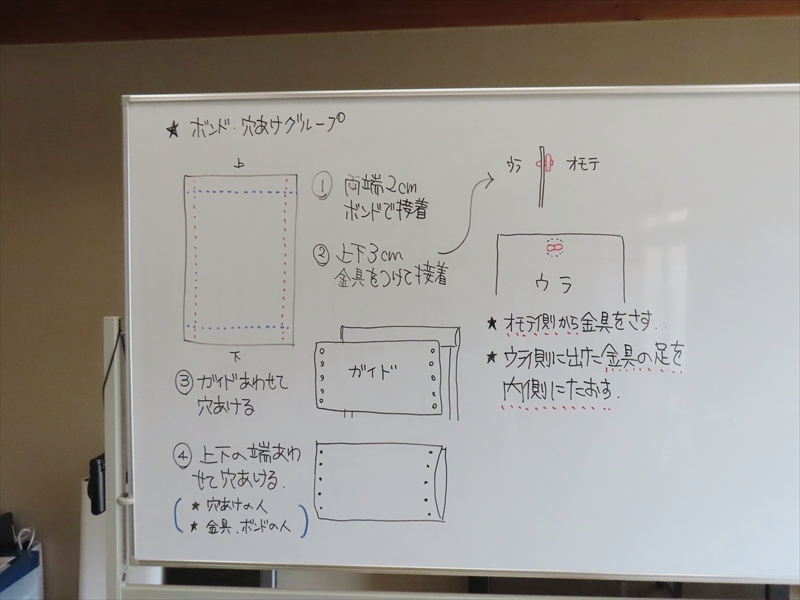 ★ ボンド・穴あけグループ①
上
下
① 両端2cm
ボンドで接着
② 上下3cm
金具をつけて接着
③ ガイドあわせて
穴あける
ガイド
④ 上下の端あわ
せて穴あける.
★ 穴あけの人
★ 金具、ボンドの人
ウラ オモテ
ウラ
★ オモテ側から金具をさす.
★ ウラ側に出た金具の足を
内側にたおす.